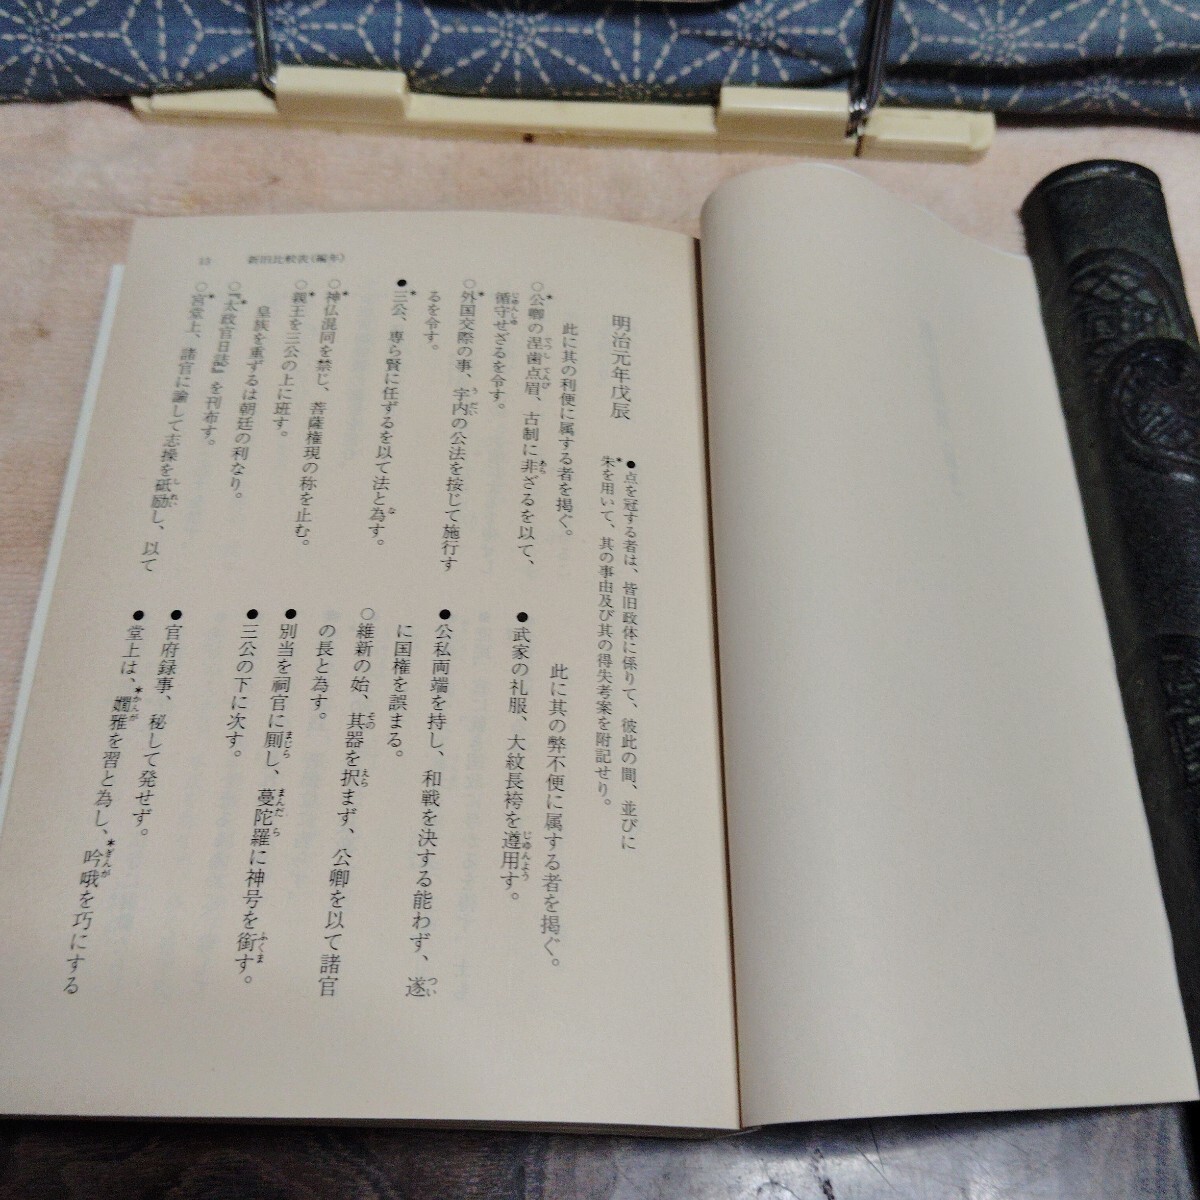 13　新旧比較表(編年)
●点を冠する者は、皆旧政体に係りて、彼此の間、並びに
朱を用いて、其の事由及び其の得失考案を附記せり。
明治元年戊辰
此に其の利便に属する者を掲ぐ。
○公卿の涅歯点眉、古制に非ざるを以て、
循守せざるを令す。
○外国交際の事、宇内の公法を按じて施行す
るを令す。
●三公、専ら賢に任ずるを以て法と為す。
○神仏混同を禁じ、菩薩権現の称を止む。
○親王を三公の上に班す。
皇族を重ずるは朝廷の利なり。
○『太政官日誌』を刊布す。
○宮堂上、諸官に諭して志操を砥励し、以て
此に其の弊不便に属する者を掲ぐ。
●武家の礼服、大紋長袴を遵用す。
●公私両端を持し、和戦を決する能わず、遂
に国権を誤まる。
○維新の始、其器を択まず、公卿を以て諸官
の長と為す。
●別当を祠官に厠し、蔓陀羅に神号を銜す。
●三公の下に次す。
●官府録事、秘して発せず。
●堂上は、嫺雅を習と為し、吟哦を巧にする